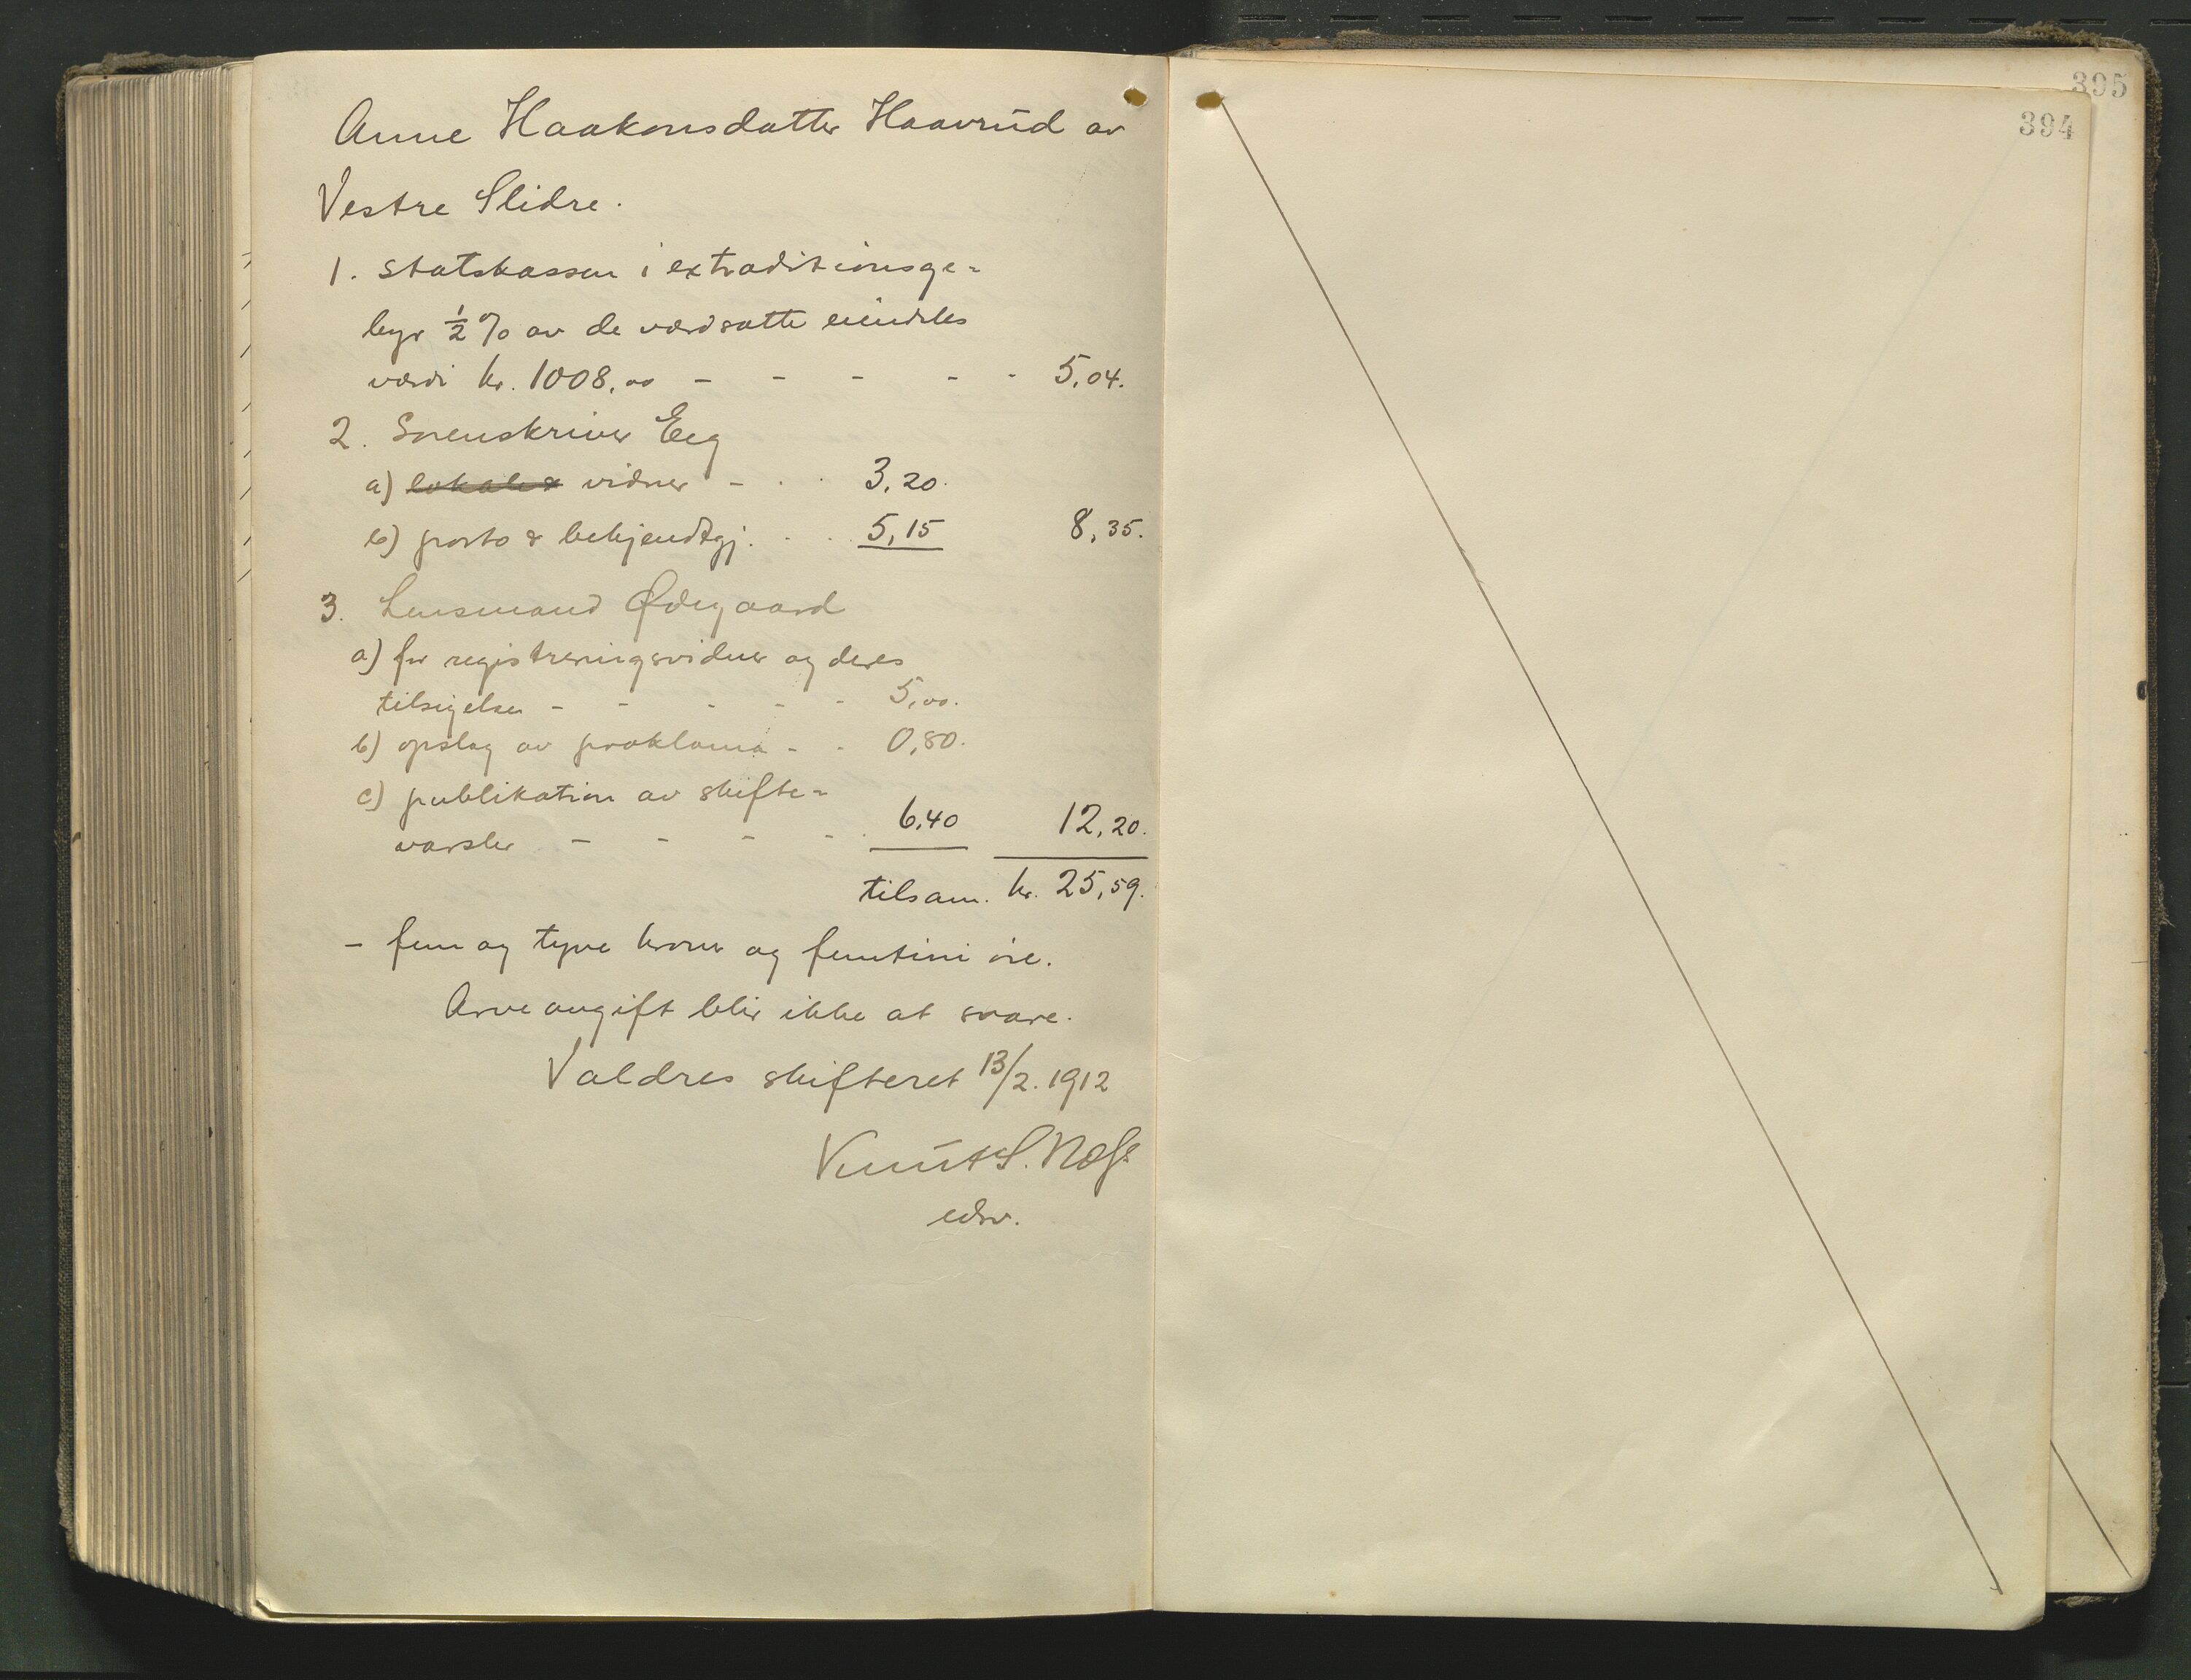 Anne Haakonsdatter Haavrud av
Vestre Slidre.
1. statskassen i extraditionsge-
byr ½ % av de værdsatte eiendeles
værdi kr. 1008,00 - - - - - 5,04.
2. Sorenskriver Eeg
a) lokale & vidner - . . 3,20.
b) porto & bekjendtgj. . . 5,15 8,35.
3. Lensmand Ødegaard
a) for registreringsvidner og deres
tilsigelse - - - - - 5,00.
b) opslag av proklama - - 0,80.
c) publikation av skifte-
varsler - - - - . 6,40 12,20.
tilsam. kr. 25,59.
- fem og tyve kroner og femtini øre.
Arveavgift blir ikke at svare.
Valdres skifteret 13/2. 1912
Knut S. Næss
edsv.
394
395